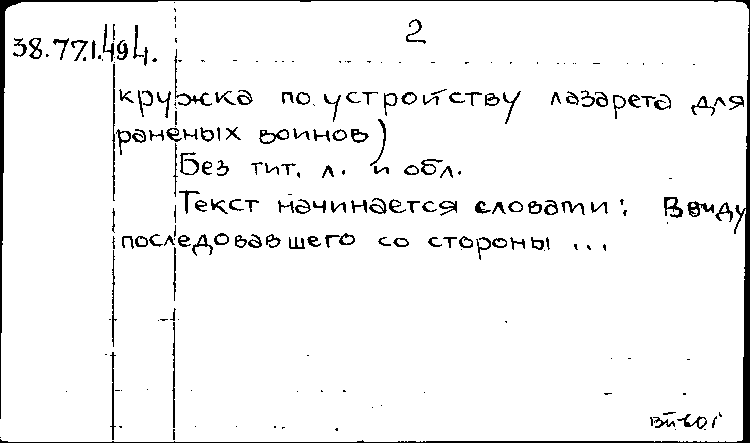 2
38.77.1.494.
кружка по устройству лазарета для
раненых воинов)
Без тит. л. и обл.
Текст начинается словами: Ввиду
последовавшего со стороны ...